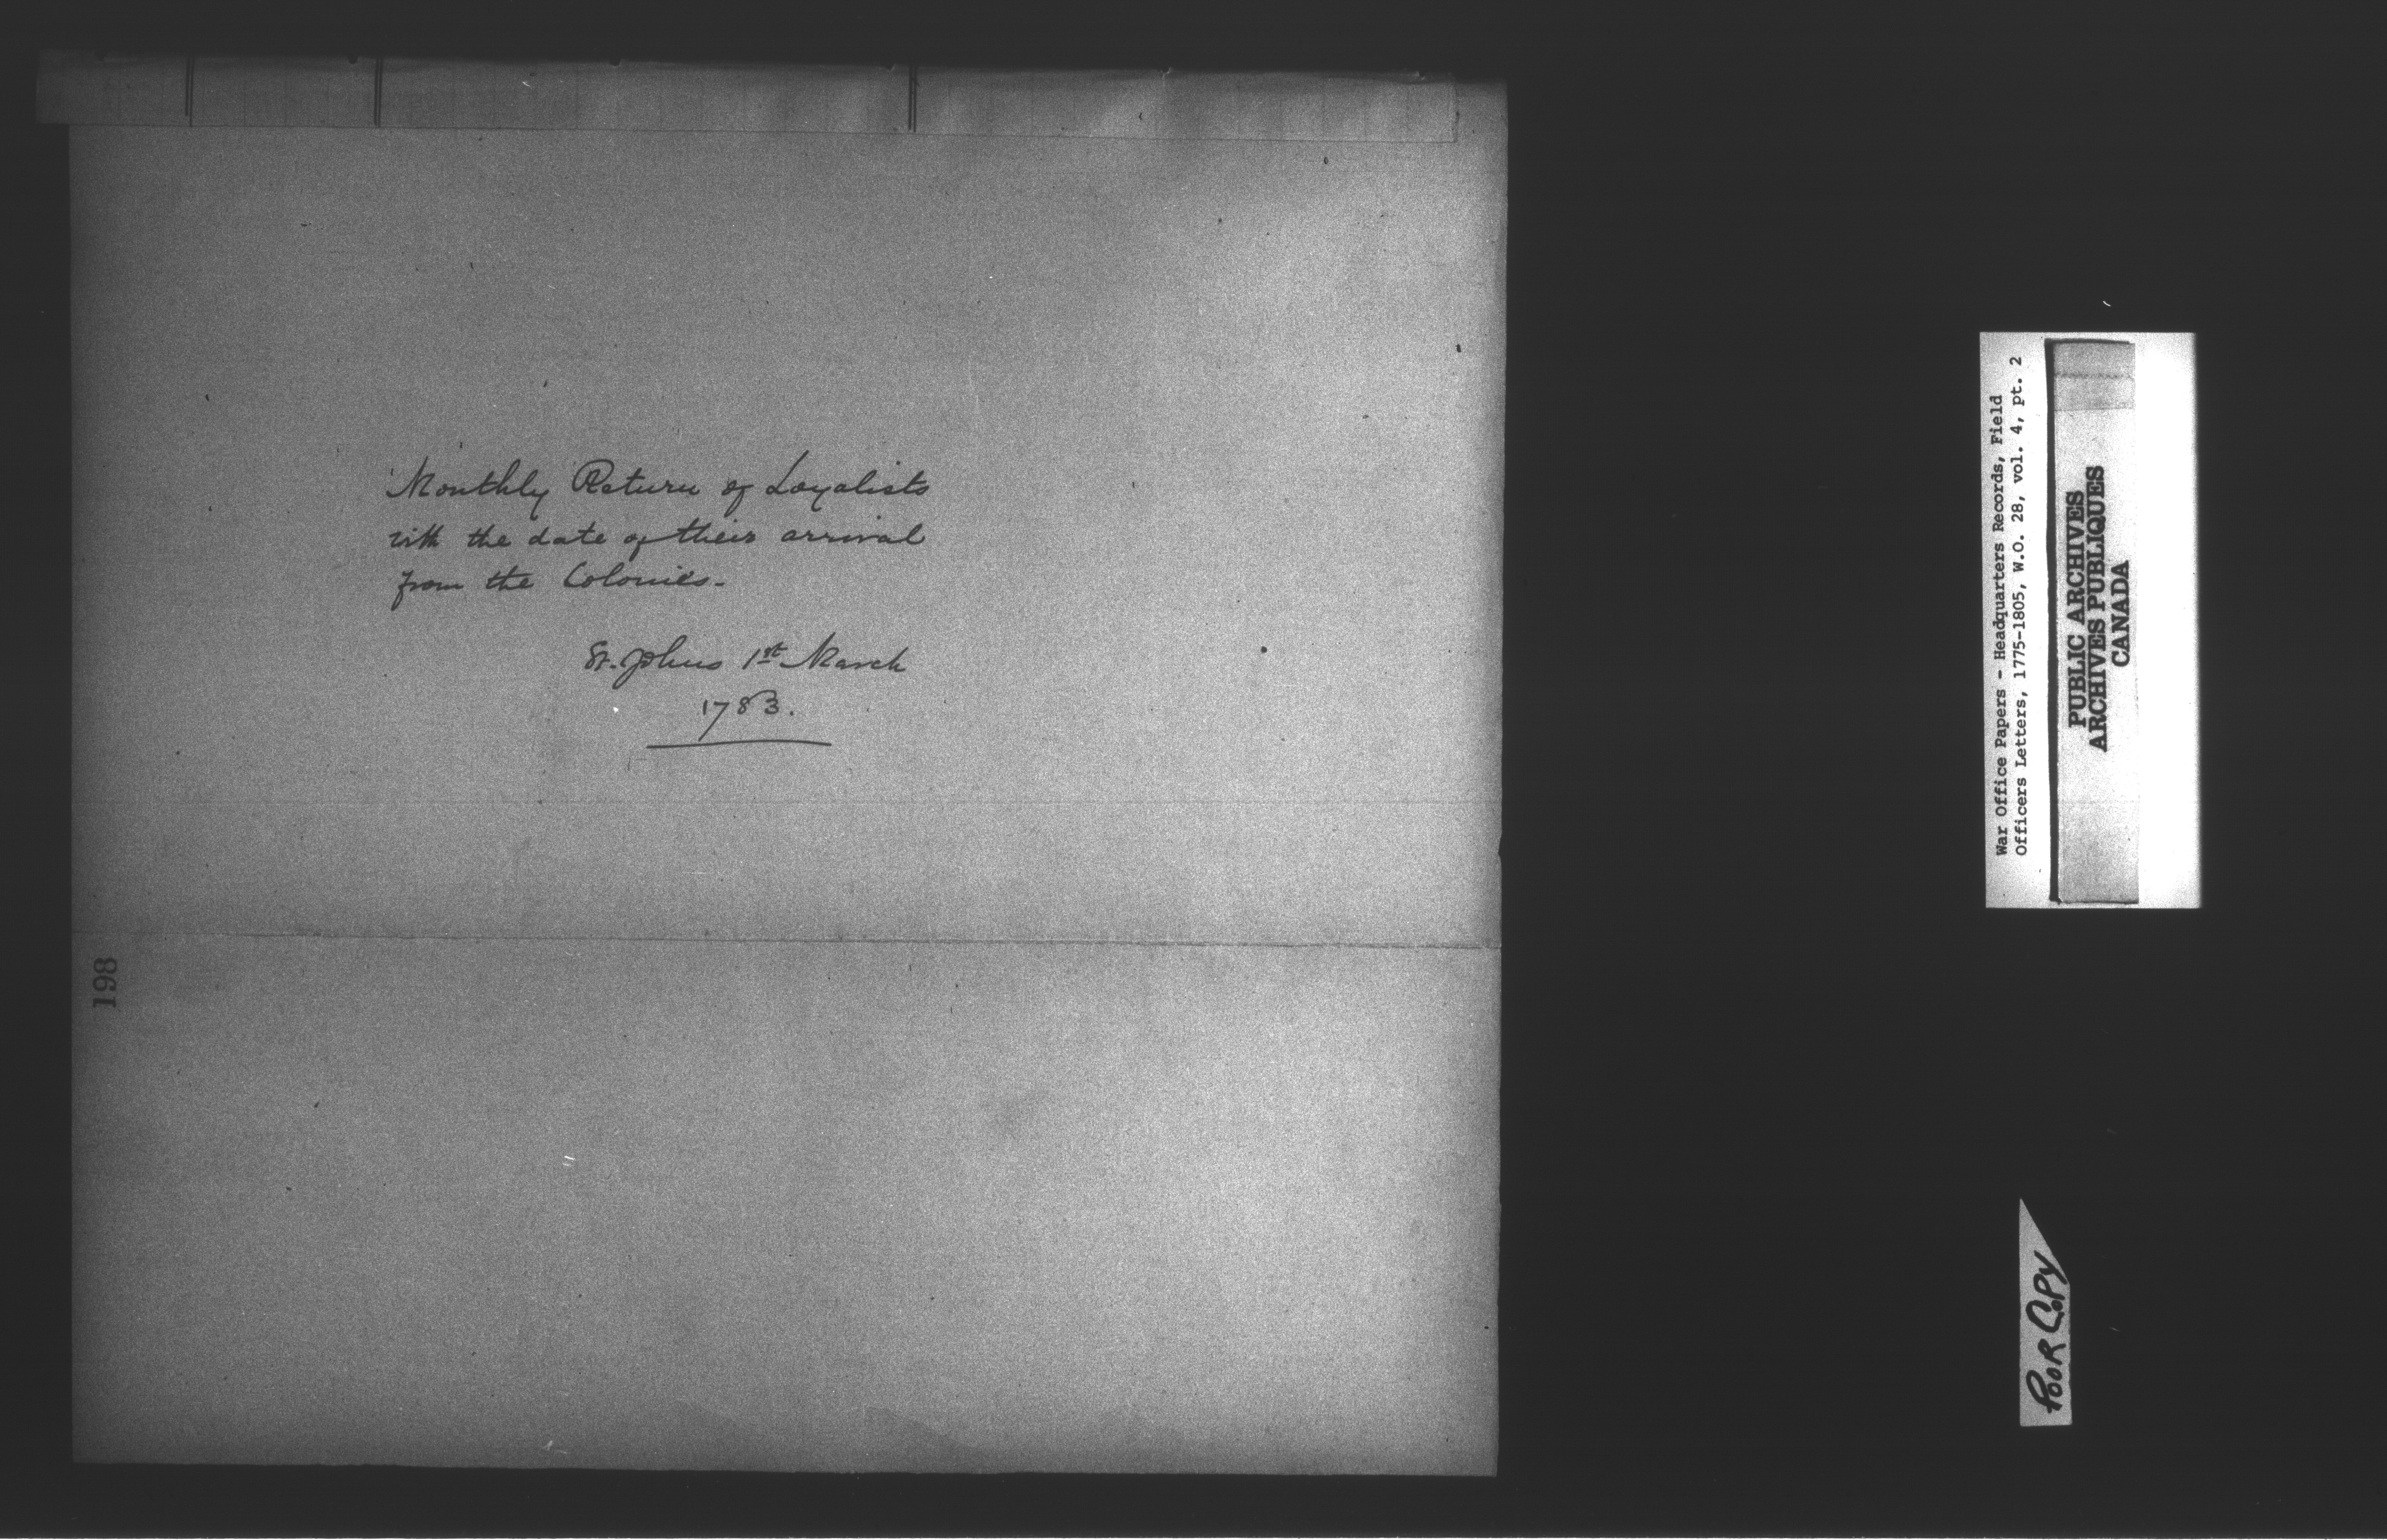 Monthly Return of Loyalists
with the date of their arrival
from the Colonies.
St. Johns 1st March
1783.
198
War Office Papers - Headquarters Records, Field
Officers Letters, 1775-1805, W.O. 28, vol. 4, pt. 2
PUBLIC ARCHIVES
ARCHIVES PUBLIQUES
CANADA
POOR COPY